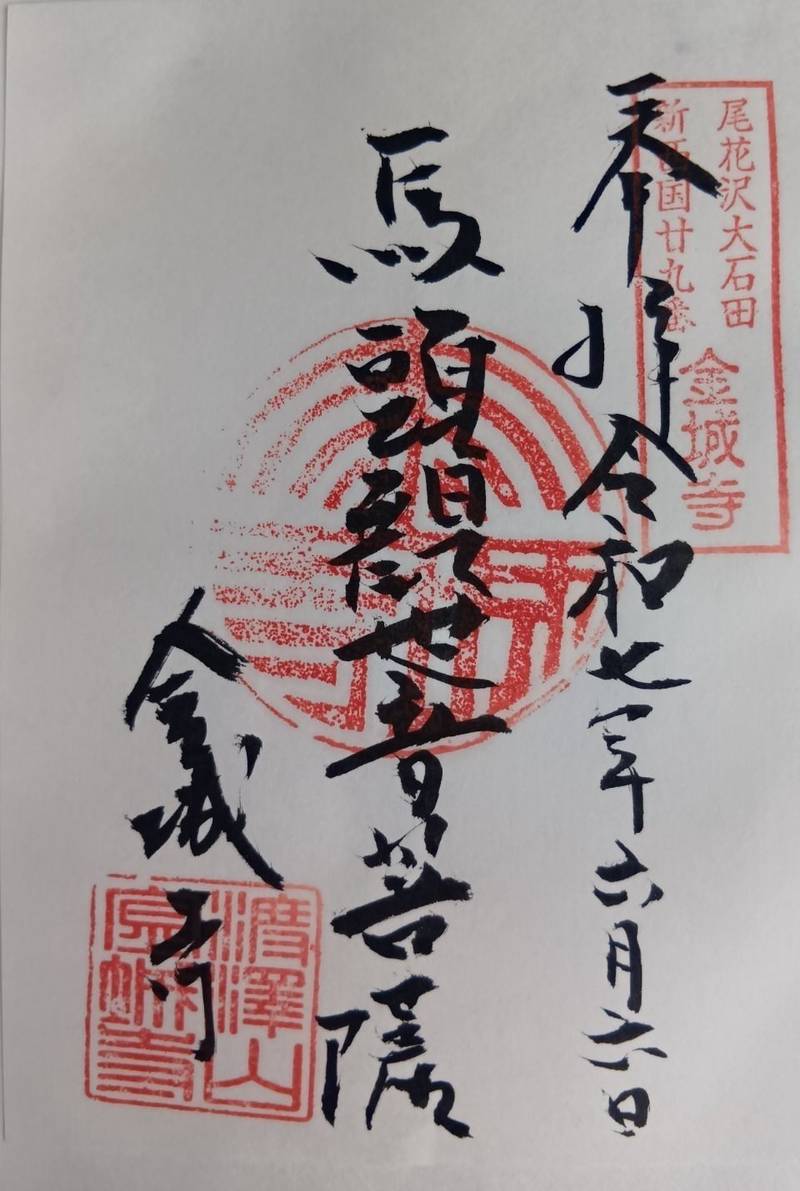 尾花沢大石田
新西国廿九番
金城寺
奉拝 令和七年六月六日
馬頭観世音菩薩
金城寺
渡澤山
金城寺